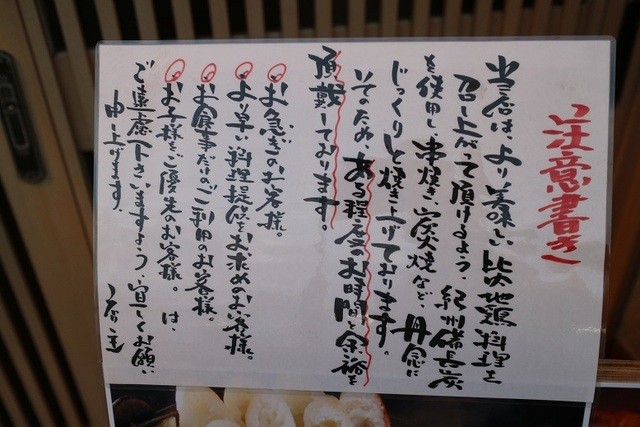 注意書き
当店は、より美味しい比内地鶏料理を
召し上がって頂けるよう、紀州備長炭
を使用し、串焼き、炭火焼など、丹念に
じっくりと焼き上げております。
そのため、ある程度のお時間と余裕を
頂戴しております。
○お急ぎのお客様。
○より早い料理提供をお求めのお客様。
○お食事だけのご利用のお客様。
○お子様をご優先のお客様。は、
ご遠慮下さいますよう、宜しくお願い
申し上げます。
店主